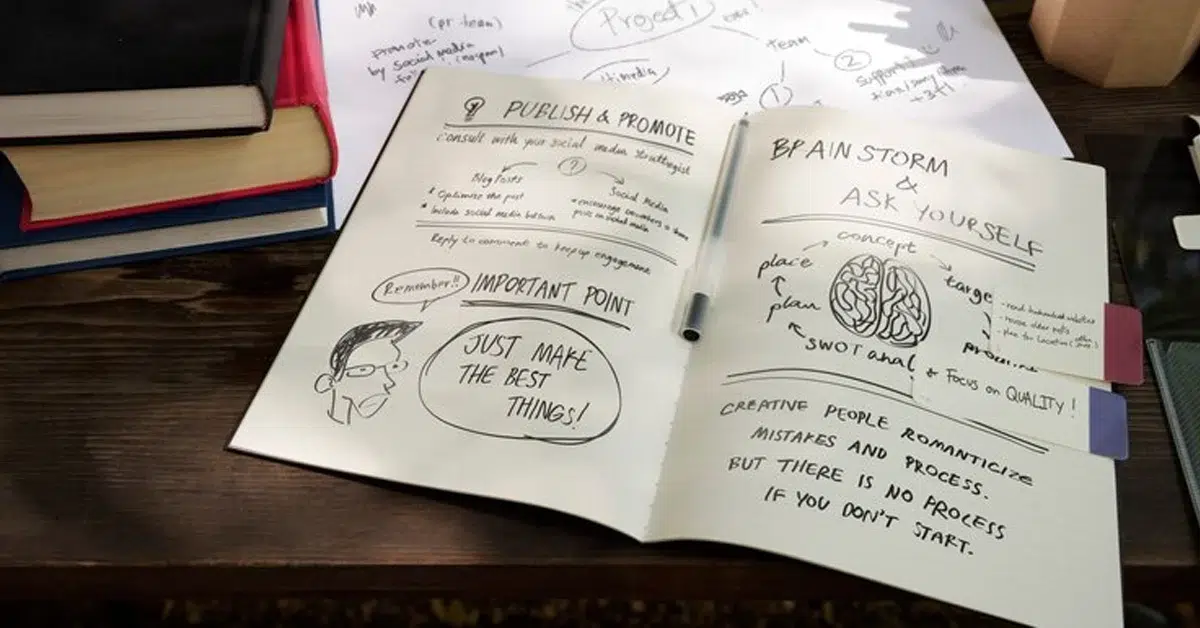 (pr team)
promote
by social media
Project 1
team
2
1
PUBLISH & PROMOTE
consult with your social media strategist
?
Blog Posts
Social Media
* Optimize the post
* encourage to share
* Include social media button
post on social media
Reply to comments to keep up engagement
Remember!!
IMPORTANT POINT
JUST MAKE
THE BEST
THINGS!
BRAINSTORM
&
ASK YOURSELF
concept
place
targe
plan
SWOT anal
* FOCUS on QUALITY!
CREATIVE PEOPLE ROMANTICIZE
MISTAKES AND PROCESS.
BUT THERE IS NO PROCESS
IF YOU DON'T START.